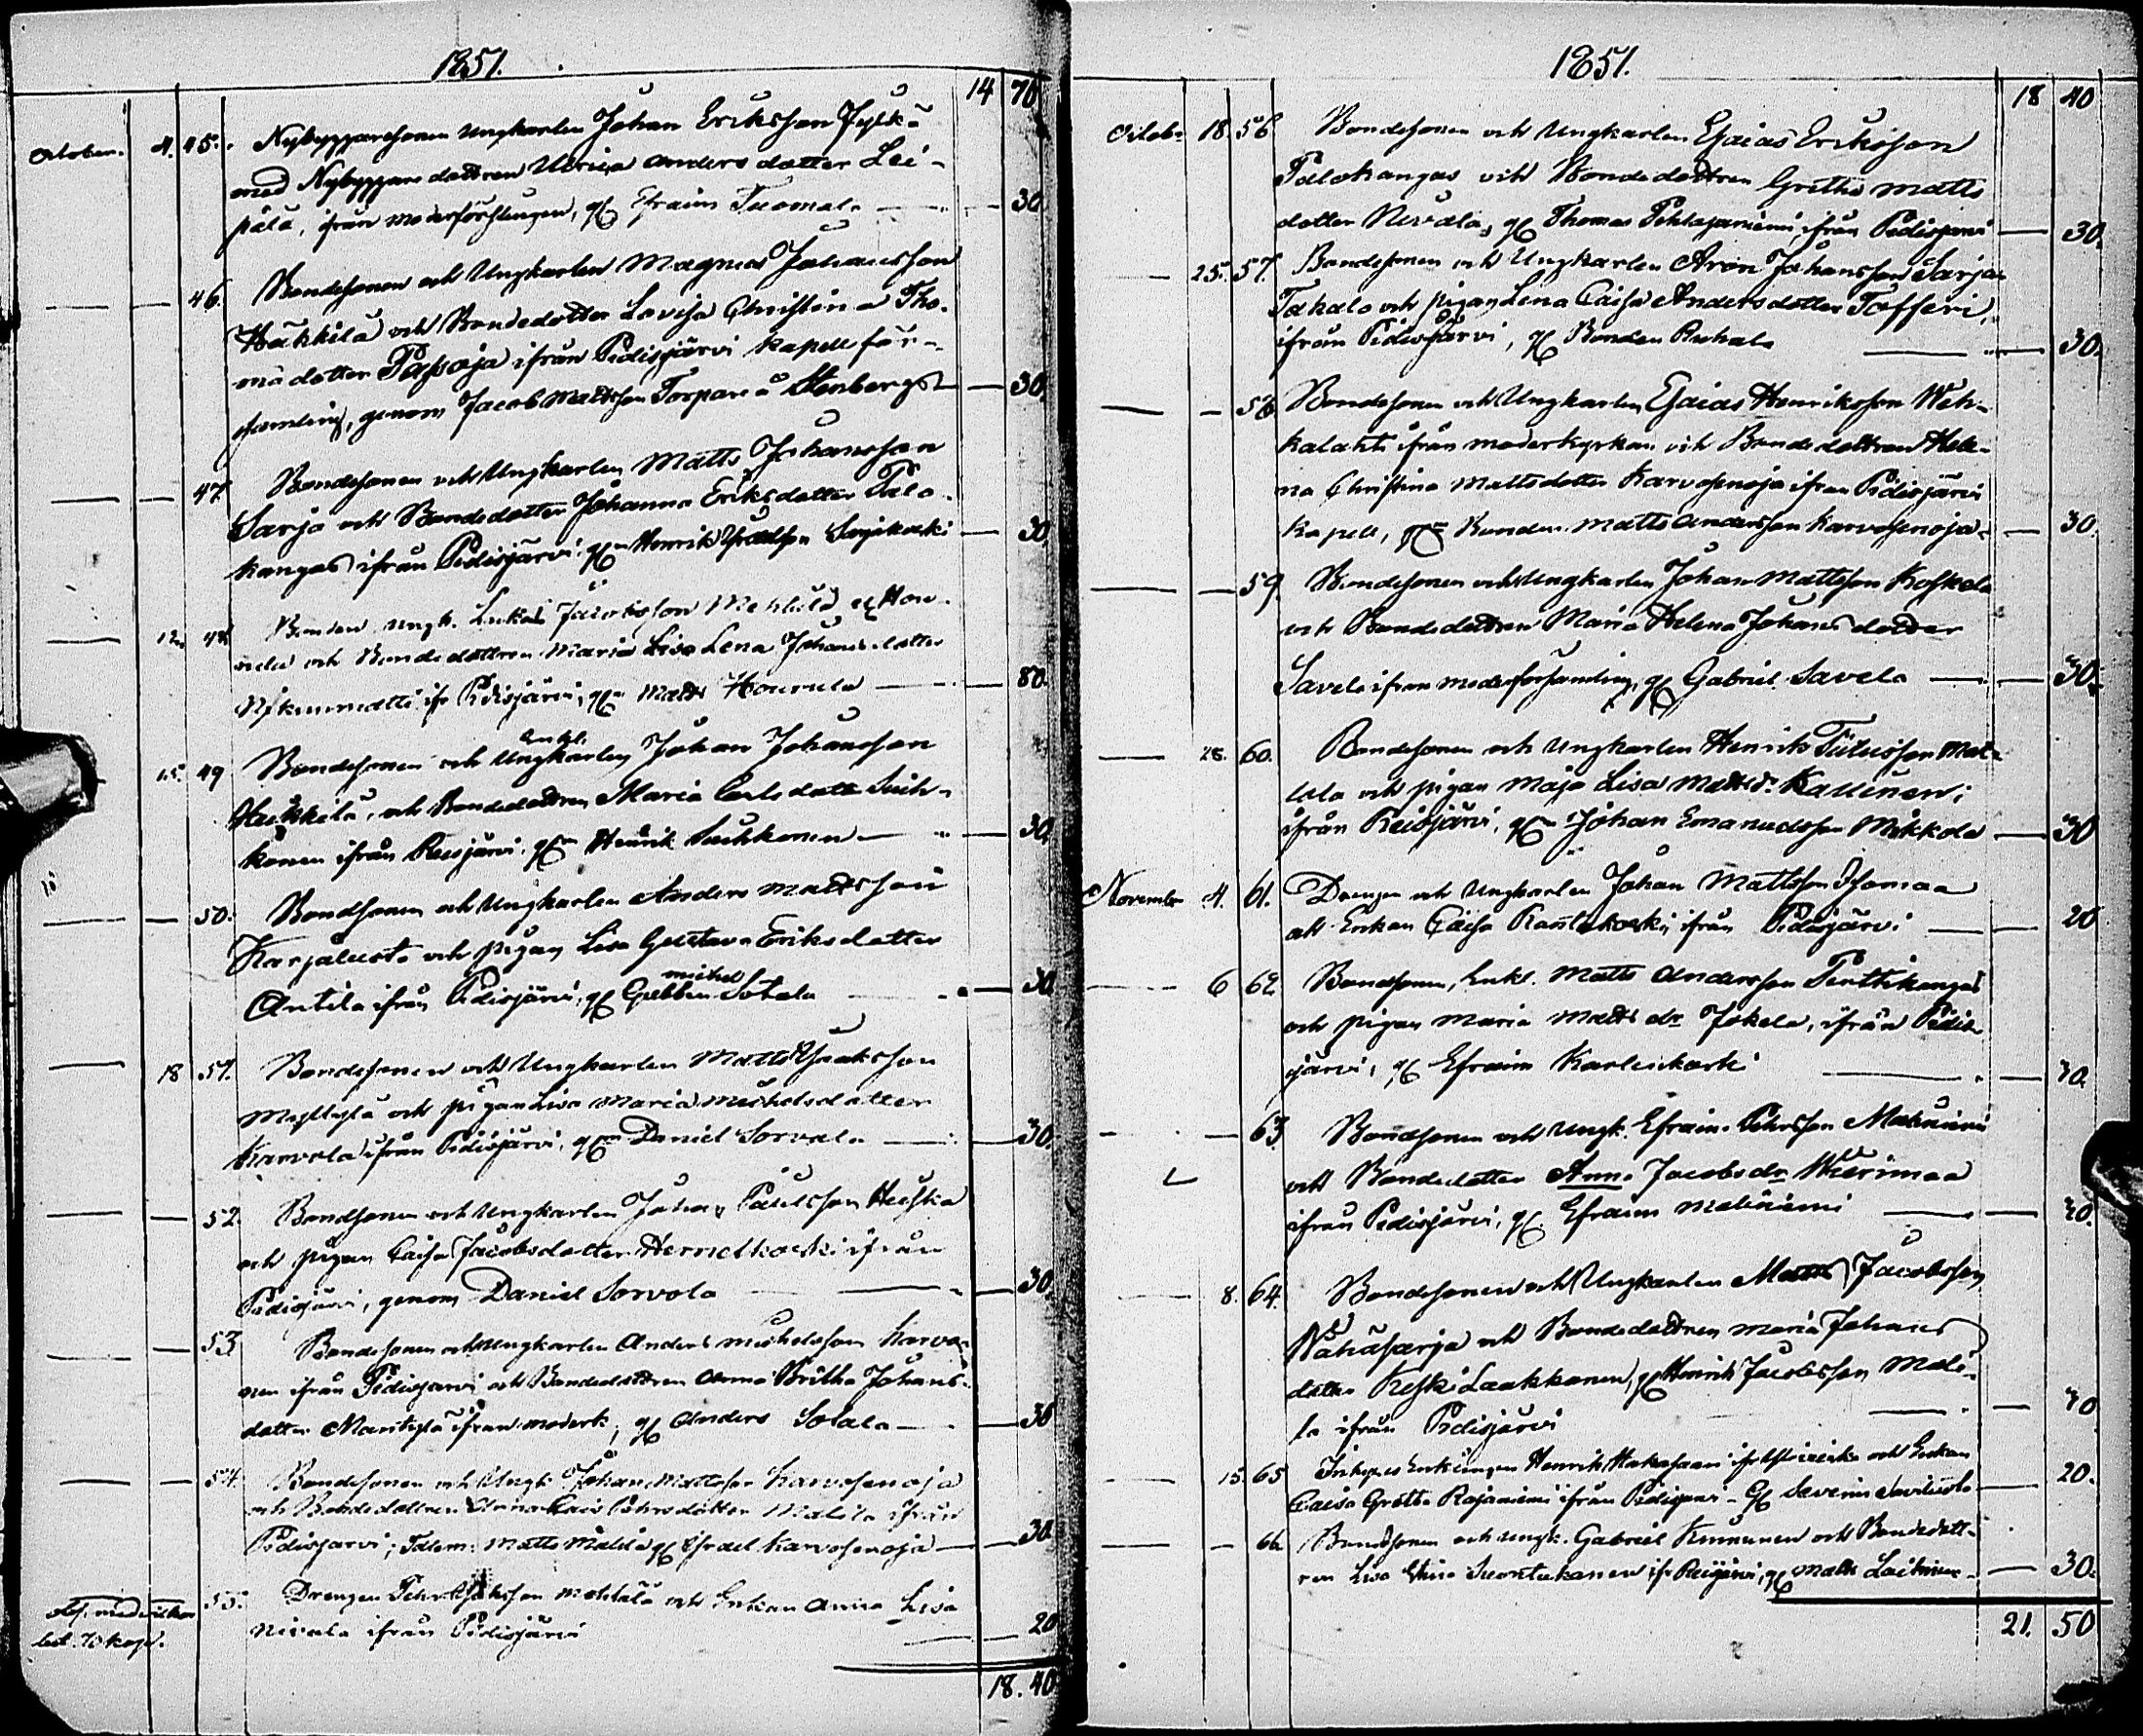 1851.
14 70
October. 4. 45. Nybyggaresonen ungkarlen Johan Eriksson Jylkä
med Nybyggare dottren Ulrica Anders dotter Lei-
pälä, ifrån moderförsamlingen, gm Efraim Tuomala — 30
— — 46. Bondesonen och Ungkarlen Magnus Johansson
Häkkilä och Bondedotter Lovisa Christina Tho-
mä dotter Passoja ifrån Pidisjärvi kapellför-
samling, genom Jacob Mattsson Torpare å Stenbergs — 30.
— — 47. Bondesonen och Ungkarlen Matts Johansson
Sarja och Bondedotter Johanna Eriksdotter Palo-
kangas ifrån Pidisjärvi gm Henrik — 30.
— 12. 48. Bonden ungk. Lukas Jacobsson
och Bondedottren Maria Lisa Lena Johansdotter
ifr Pidisjärvi, gm Matts — 80.
15. 49 Bondesonen och Enkl. Ungkarlen Johan Johansson
Heikkilä, och Bondedottren Maria Carlsdotter Suih-
konen ifrån Reisjärvi gm Henrik Suihkonen — 30.
— — 50. Bondsonen och Ungkarlen Anders Mattsson
Karjaluoto och pigan Lisa Gustava Eriksdotter
Antila ifrån Pidisjärvi, gm Gubben Michel Sotala — 30
— 18 51. Bondesonen och Ungkarlen Matts Isaksson
och pigan Lisa Maria Michelsdotter
Karvola ifrån Pidisjärvi, gm Daniel Sorvala — 30.
— — 52. Bondsonen och Ungkarlen Johan Paulsson
och pigan Caisa Jacobsdotter ifrån
Pidisjärvi, genom Daniel Sorvola — 30.
— — 53. Bondesonen och Ungkarlen Anders Michelsson Karvo-
nen ifrån Pidisjärvi och Bondedottren Anna Britha Johans-
dotter ifrån moderk, gm Anders Solala — 30
— — 54. Bondesonen och Ungk Johan Mattsson Karvosenoja
och Bondedottren Anna Caisa Pehrsdotter Malila ifrån
Pidisjärvi, Matts Malila gm Israel Karvosenoja — 30.
bet. 70 kop. 55. Drengen Pehr Isaksson Mehtälä och Enkan Anna Lisa
Nivala ifrån Pidisjärvi — 20
18. 40.
1851.
18 40
Octob: 18. 56. Bondesonen och Ungkarlen Esaias Eriksson
Palokangas och Bondedottren Gretha Matts
dotter Nivala, gm Thomas Pehkajaniemi ifrån Pidisjärvi — 30.
— 25. 57. Bondesonen och Ungkarlen Aron Johansson Sarja-
Takalo och pigan Lena Caisa Andersdotter Tofferi,
ifrån Pidisjärvi, gm Bonden Ruhala — 30.
— — 58 Bondesonen och Ungkarlen Esaias Henriksson Weh-
kalahti ifrån moderkyrkan och Bondedottren Hele-
na Christina Mattsdotter Karvosenoja ifrån Pidisjärvi
Kapell, gm Bonden Matts Andersson Karvosenoja — 30.
— — 59 Bondesonen och Ungkarlen Johan Mattsson Koskela
och Bondedottren Maria Helena Johans dotter
Savela ifrån moderförsamling, gm Gabriel Savela — 30.
— 28. 60. Bondesonen och Ungkarlen Henrik
och pigan Maja Lisa Mattsdr Kallunen;
ifrån Reisjärvi, gm Johan Emanuelsson Mikkola — 30
November 4. 61. Drengen och Ungkarlen Johan Mattsson Isomaa
och Enkan Caisa Raudaskoski ifrån Pidisjärvi — 20
— 6 62. Bondsonen, Enkl. Matts Andersson Perttikangas
och pigan Maria Matts dr Jokela, ifrån Pidis-
järvi, gm Efraim — 30.
— — 63. Bondsonen och Ungk. Efraim Pehrsson Maliniemi
och Bondedotter Anna Jacobsdr Wierimaa
ifrån Pidisjärvi, gm Efraim Maliniemi — 30.
— 8. 64. Bondesonen och Ungkarlen Matts Jacobsson
Wähäsarja och Bondedottren Maria Johans
dotter Keski Laakkonen, gm Henrik Jacobsson Mali-
la ifrån Pidisjärvi — 30
— 15. 65 Inhyses Enklingen Henrik och Enkan
Caisa Gretha Rajaniemi ifrån Pidisjärvi - gm Severin Saviluoto — 20.
— — 66. Bondsonen och ungk. Gabriel Kinnunen och Bondedott-
ren Lisa Stina ifr Reisjärvi, gm Matts Laitinen — 30.
21. 50